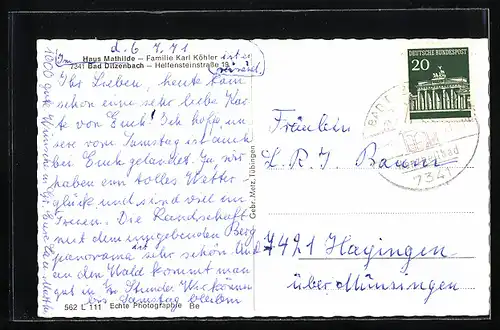 d. 6. 7. 71
Haus Mathilde – Familie Karl Köhler
7341 Bad Ditzenbach – Helfensteinstraße 19
Ihr Lieben, heute kam
schon eine sehr liebe Kar
te von Euch! Ich hoffe un
sere vom Samstag ist auch
bei Euch gelandet. Ja, wir
haben ein tolles Wetter
glück und sind viel im
Freien. Die Landschaft
mit dem umgebenden Berg
panorama ist sehr schön. Und
an den Wald kommt man
gut in Stunde. Wir können
bis Samstag bleiben
1000 gute Wünsche
562 L 111 Echte Photographie Be
Gebr. Metz, Tübingen
DEUTSCHE BUNDESPOST
20
BAD
7341
Fräulein
L. R. J. Bauer
7421 Hayingen
über Münsingen